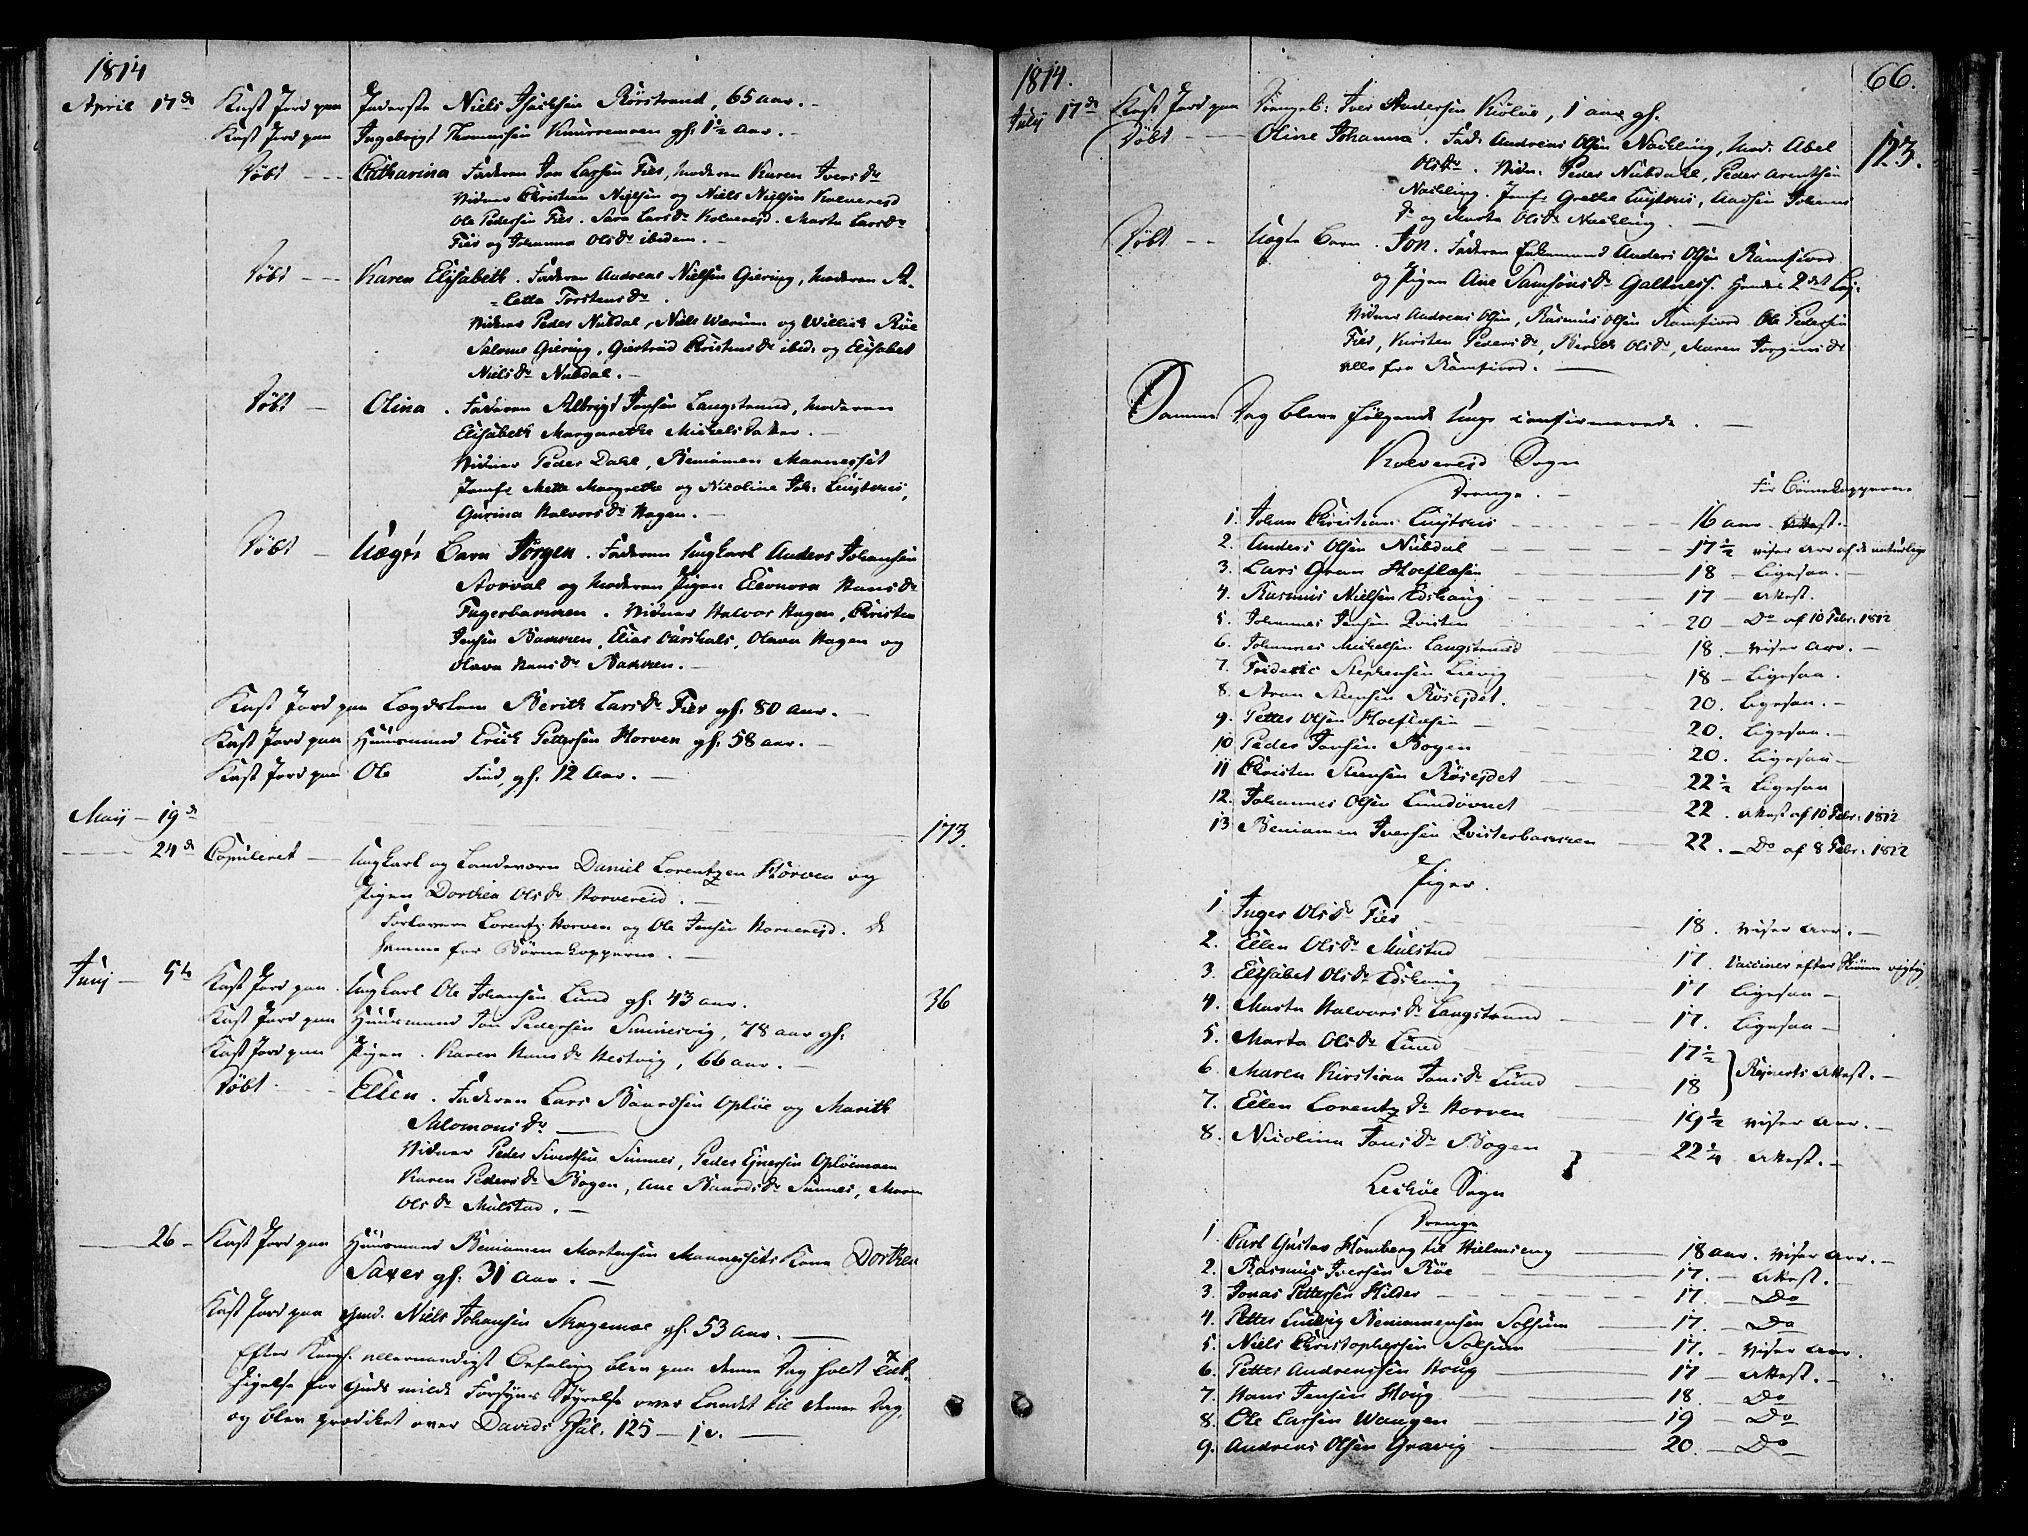 1814
April 17de Kast Jord paa Inderste Niels Isachsen Rörstrand, 65 aar.
Kast Jord paa Ingebrigt Thomassen Knurremoen gl: 1½ Aar.
Døbt Catharina Faderen Jon Larsen Fier, Moderen Karen Ivers Dr
Vidner Christian Nielsen og Niels Nielsen Kolvereid
Ole Pedersen Fier. Sara Larsdr Kolvereid. Marta Larsdr
Fier og Johanna Olsdr ibidem.
Døbt Karen Elisabeth. Faderen Andreas Nielsen Giering, Moderen A-
letta Torstensdr.
Vidner Peder Nubdal, Niels Wærum og Willich Röe
Salome Giering, Giertrud Christensdr ibid: og Elisabet
Nielsdr Nubdal.
Døbt Olina. Faderen Albrigt Jonsen Langstrand, Moderen
Elisabeth Margarethe Michelsdatter.
Vidner Peder Dahl, Beniamen Mannesset
Jomfr Mette Margrethe og Nicoline Joh:
Gurina Halvorsdr Hagen.
Døbt Uægte Barn Jörgen. Faderen Ungkarl Anders Johansen
Aarval og Moderen Pigen Eleonora Hansdr
Vidner Halvor Hagen, Christen
Jensen Olava Hagen og
Olava Hansdr
Kast Jord paa Lægdslem Berith Larsdr Fier gl: 80 Aar.
Kast Jord paa Huusmand Erich Pettersen Horven gl: 58 aar.
Kast Jord paa Ole Find, gl: 12 Aar.
May 19de 173.
24de Copuleret Ungkarl og Landeværn Daniel Lorentzen Horven og
Pigen Dorthea Olsdr Horvereid.
Forlovere Lorentz Horven og Ole Jensen Horvereid. De
samme for Börnekopperne.
Junj 5te Kast Jord paa Ungkarl Ole Johansen Lund gl: 43 aar. 36
Kast Jord paa Huusmand Jon Pedersen Sunnesvig, 78 aar gl:
Kast Jord paa Pigen. Karen Hansdr Hestvig, 66 aar.
Døbt Ellen. Faderen Lars Baardsen Oplöe og Marith
Salomonsdr
Vidner Peder Sivertsen Sunnes, Peder Ejnersen Oplöemoen
Karen Pedersdr Bogen, Ane Baardsdr Sunnes, Maren
Olsdr Mulstad.
26 Kast Jord paa Huusmand Beniamen Mortensen Mannessets Kone Dorthea
Saxes gl: 31 aar.
Kast Jord paa Gmd. Niels Johansen Skagemoe gl: 53 aar.
Efter Kongl. allernaadigst Befaling blev paa denne Dag holdt Tak-
sigelse for Guds milde Forsyns Styrelse over Landet til denne Dag,
og blev prædiket over Davids Psal. 125 - 1 v.
66.
1814.
July 17de Kast Jord paa Drengeb: Iver Andersen Kiöloe, 1 aar gl.
Døbt Oline Johanna. Fad: Andreas Olsen Nachling, Mod: Abel 123.
Olsdr. Vidn: Peder Nubdahl, Peder Arentsen
Nachling. Jomfr Grethe Johans
Dr og Marta Olsdr Nachling.
Døbt Uægte Barn. Jon. Faderen Enkemand Anders Olsen Ramfiord
og Pigen Ane Samsonsdr Galtness. Hendes 2det Lej:
Vidner Andreas Olsen, Rasmus Olsen Ramfiord Ole Pedersen
Fier, Kirsten Pedersdr, Berith Olsdr, Maren Jörgensdr
alle fra Ramfiord.
Samme Dag bleve følgende Unge confirmerede.
Kolvereid Sogn
Drenge. For Börnekopperne
1. Johan Christian 16 aar Attest.
2. Anders Olsen Nubdal 17½ viser Arr af de naturlige
3. Lars Gran Hoeflæsen 18 Ligesaa.
4. Rasmus Nielsen Edshaug 17 Attest.
5. Johannes Jensen Qvisten 20 Do af 10 Febr: 1812
6. Johannes Michelsen Langstrand 18. viser Arr.
7. Frideric Stephensen Lievig 18 Ligesaa.
8. Aron Steensen Rösejdet. 20. Ligesaa.
9. Petter Olsen Hoeflæsen 20. Ligesaa.
10 Peder Jonsen Bogen 20. Ligesaa
11 Christen Steensen Rösejdet 22½ Ligesaa
12. Johannes Olsen Lundövret 22. Attest af 10 Febr: 1812
13 Beniamen Iversen 22. Do af 8 Febr: 1812
Piger.
1 Inger Olsdr Fier 18. viser Arr.
2. Ellen Olsdr Mulstad 17. Vaccineret efter Skiönn rigtig
3. Elisabet Olsdr Edshaug 17 Ligesaa
4. Marta Halvorsdr Langstrand 17. Ligesaa
5. Marta Olsdr Lund 17½
6. Maren Kirstina Jonsdr Lund 18 Attest.
7. Ellen Lorentzdr Horven 19½ viser Arr.
8. Nicolina Jonsdr Bogen 22¼ Attest.
Lechöe Sogn
Drenge
1 Carl Gustav Homberg til Hielmseng 18 aar. viser Arr.
2. Rasmus Iversen Röe 17. Attest.
3. Jonas Pettersen Hilder 17. Do
4. Petter Ludvig Beniamensen Solsum 17. Do
5. Niels Christophersen Solsum 17. viser Arr.
6. Petter Andreassen Houg 17 Attest.
7. Hans Jensen Houg 18. Do
8. Ole Larsen Wangen 19 Do
9. Andreas Olsen Gravig 20. Do